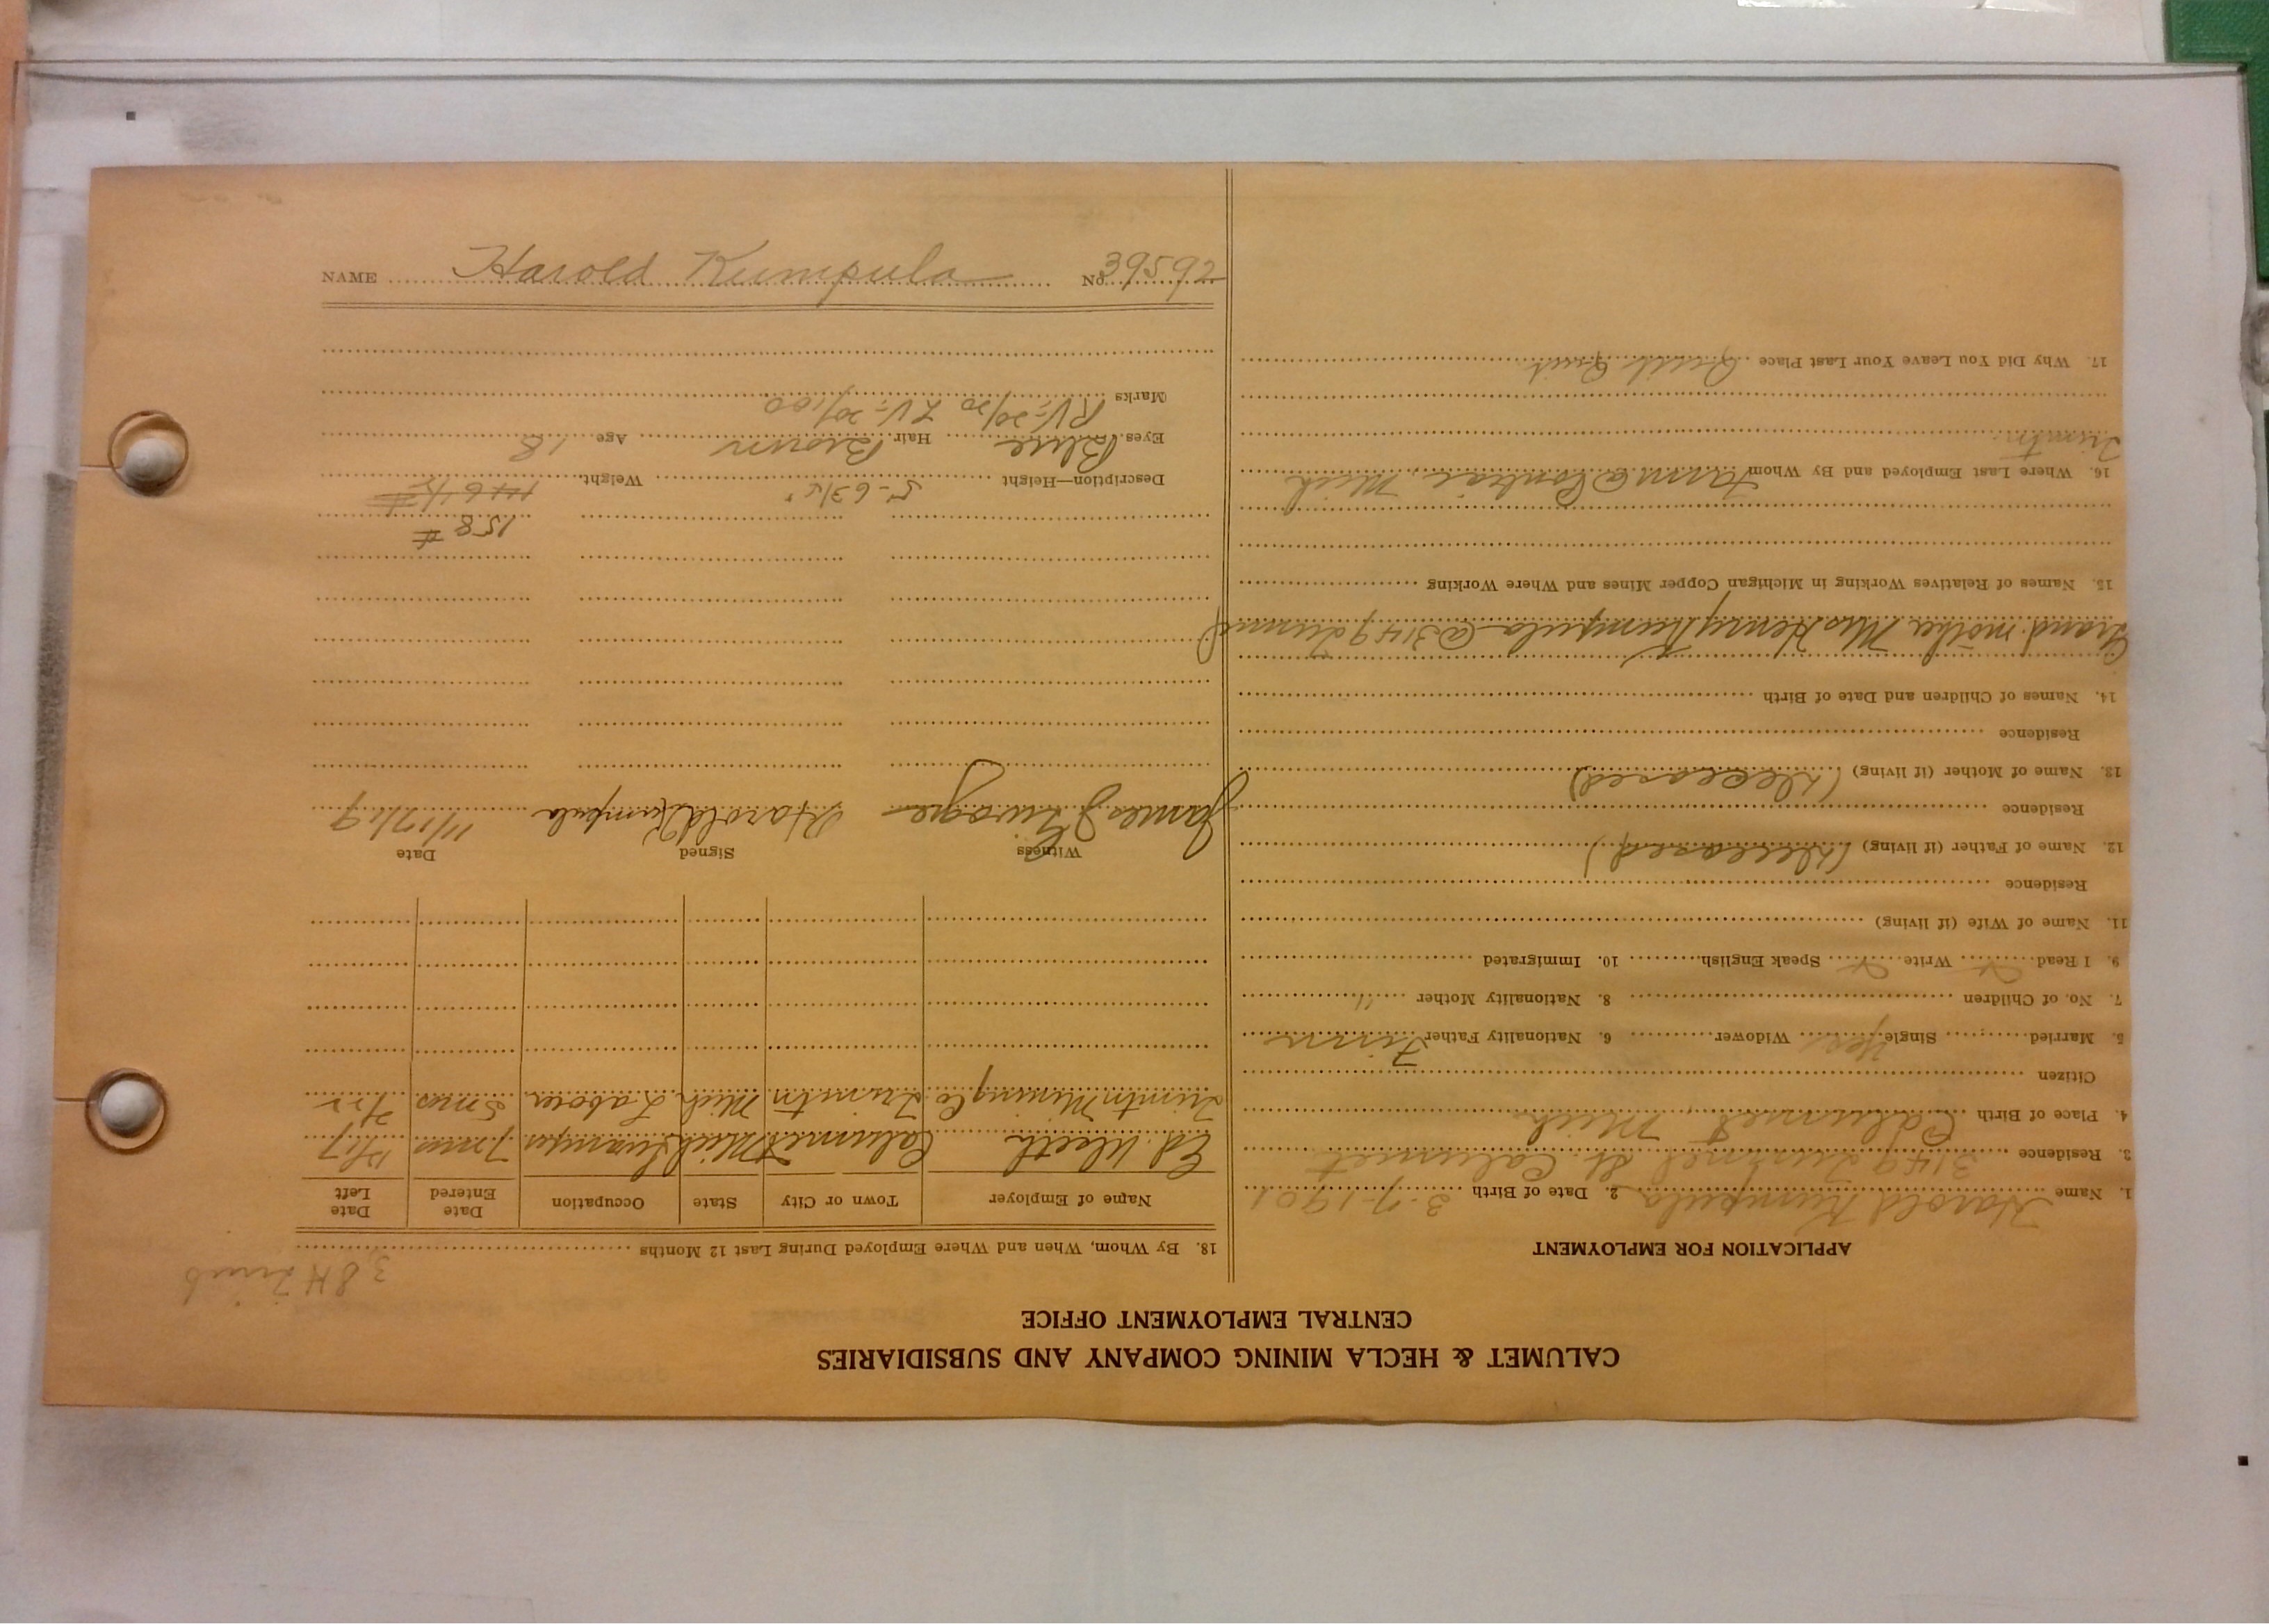 CALUMET & HECLA MINING COMPANY AND SUBSIDIARIES
CENTRAL EMPLOYMENT OFFICE
APPLICATION FOR EMPLOYMENT
1. Name Harold Kumpula 2. Date of Birth 3-7-1901
3. Residence 3149 Tunnel St. Calumet
4. Place of Birth Calumet Mich
Citizen
5. Married Single Yes Widower 6. Nationality Father Finn
7. No. of Children 8. Nationality Mother "
9. I Read Write Speak English 10. Immigrated
11. Name of Wife (if living)
Residence
12. Name of Father (if living) (Deceased)
Residence
13. Name of Mother (if living) (Deceased)
Residence
14. Names of Children and Date of Birth
Grand mother Mrs Henry Kumpula @ 3149 Tunnel
15. Names of Relatives Working in Michigan Copper Mines and Where Working
16. Where Last Employed and By Whom Farm @ Pontiac, Mich
Trimtn
17. Why Did You Leave Your Last Place Quit Quit
18. By Whom, When and Where Employed During Last 12 Months
Name of Employer Town or City State Occupation Date Entered Date Left
Ed. Calumet Mich 7 mos
Trimtn Mining Co. Trimtn Mich. Laborer 5 mos
Witness Signed Date
James Harold Kumpula 11/17/19
158 #
Description—Height 5'-6 3/4" Weight 146 1/2 #
Eyes Blue Hair Brown Age 18
Marks RV=20/20 LV=20/100
NAME Harold Kumpula No. 39592